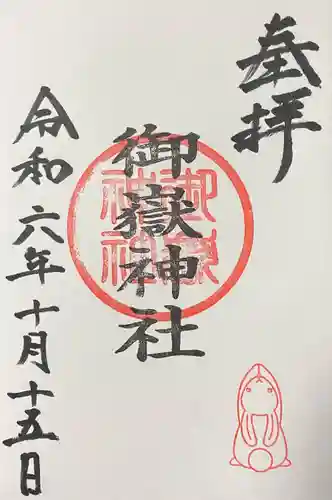 奉拝
御嶽神社
御嶽
神社
令和六年十月十五日